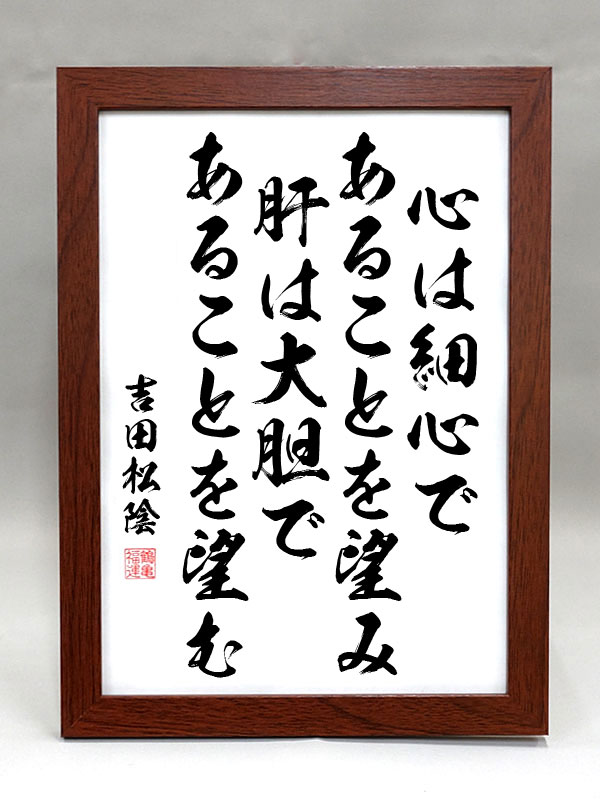 心は細心で
あることを望み
肝は大胆で
あることを望む
吉田松陰
鶴亀
福運